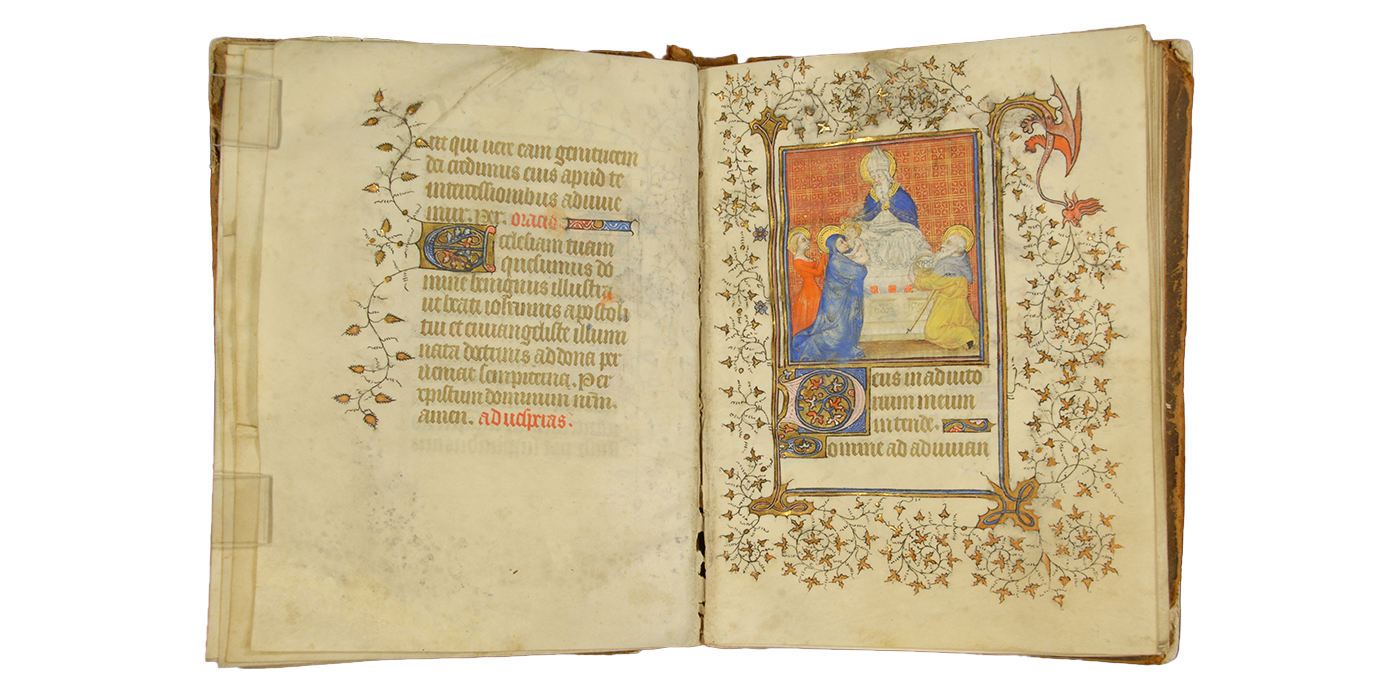 ere qui uere eam genitricem
dei credimus eius apud te
intercessionibus adiuue
mur. Per. oracio
Ecclesiam tuam
quesumus do
mine benignus illustra
ut beati iohannis apostoli
tui et euuangeliste illumi
nata doctrinis ad dona per
ueniat sempiterna. Per
xpistum dominum nrm.
amen. ad uesperas.
Deus in adiuto
rium meum
intende.
Domine ad adiuuan